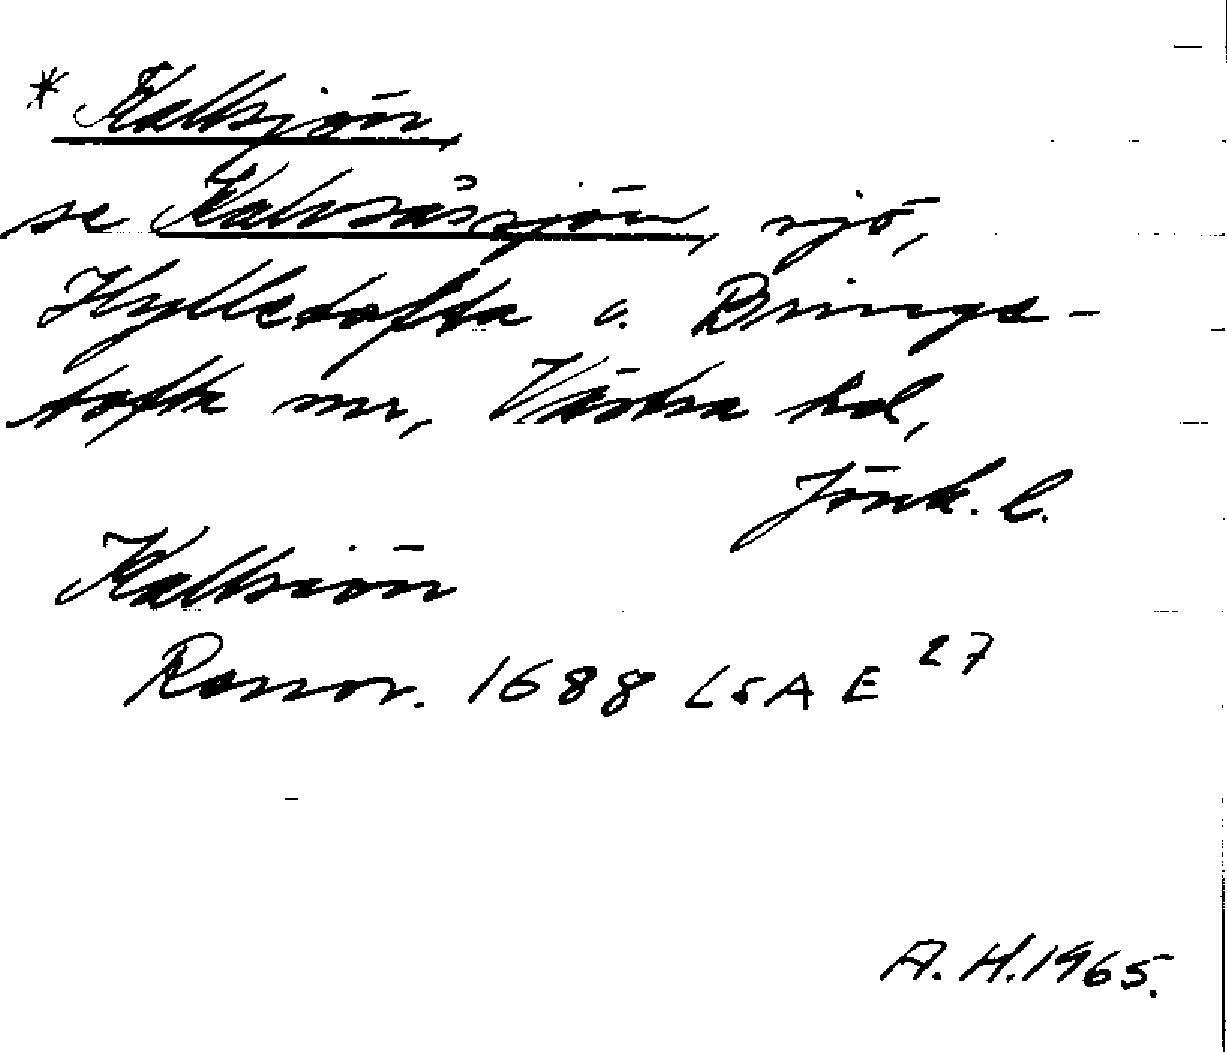 * Kalksjön,
se Kalvsåssjön, sjö,
Hylletofta o. Bringe-
tofta snr, Västra hd,
Jönk. l.
Kalksiön
Rannor. 1688 LSA E 27
A. H. 1965.